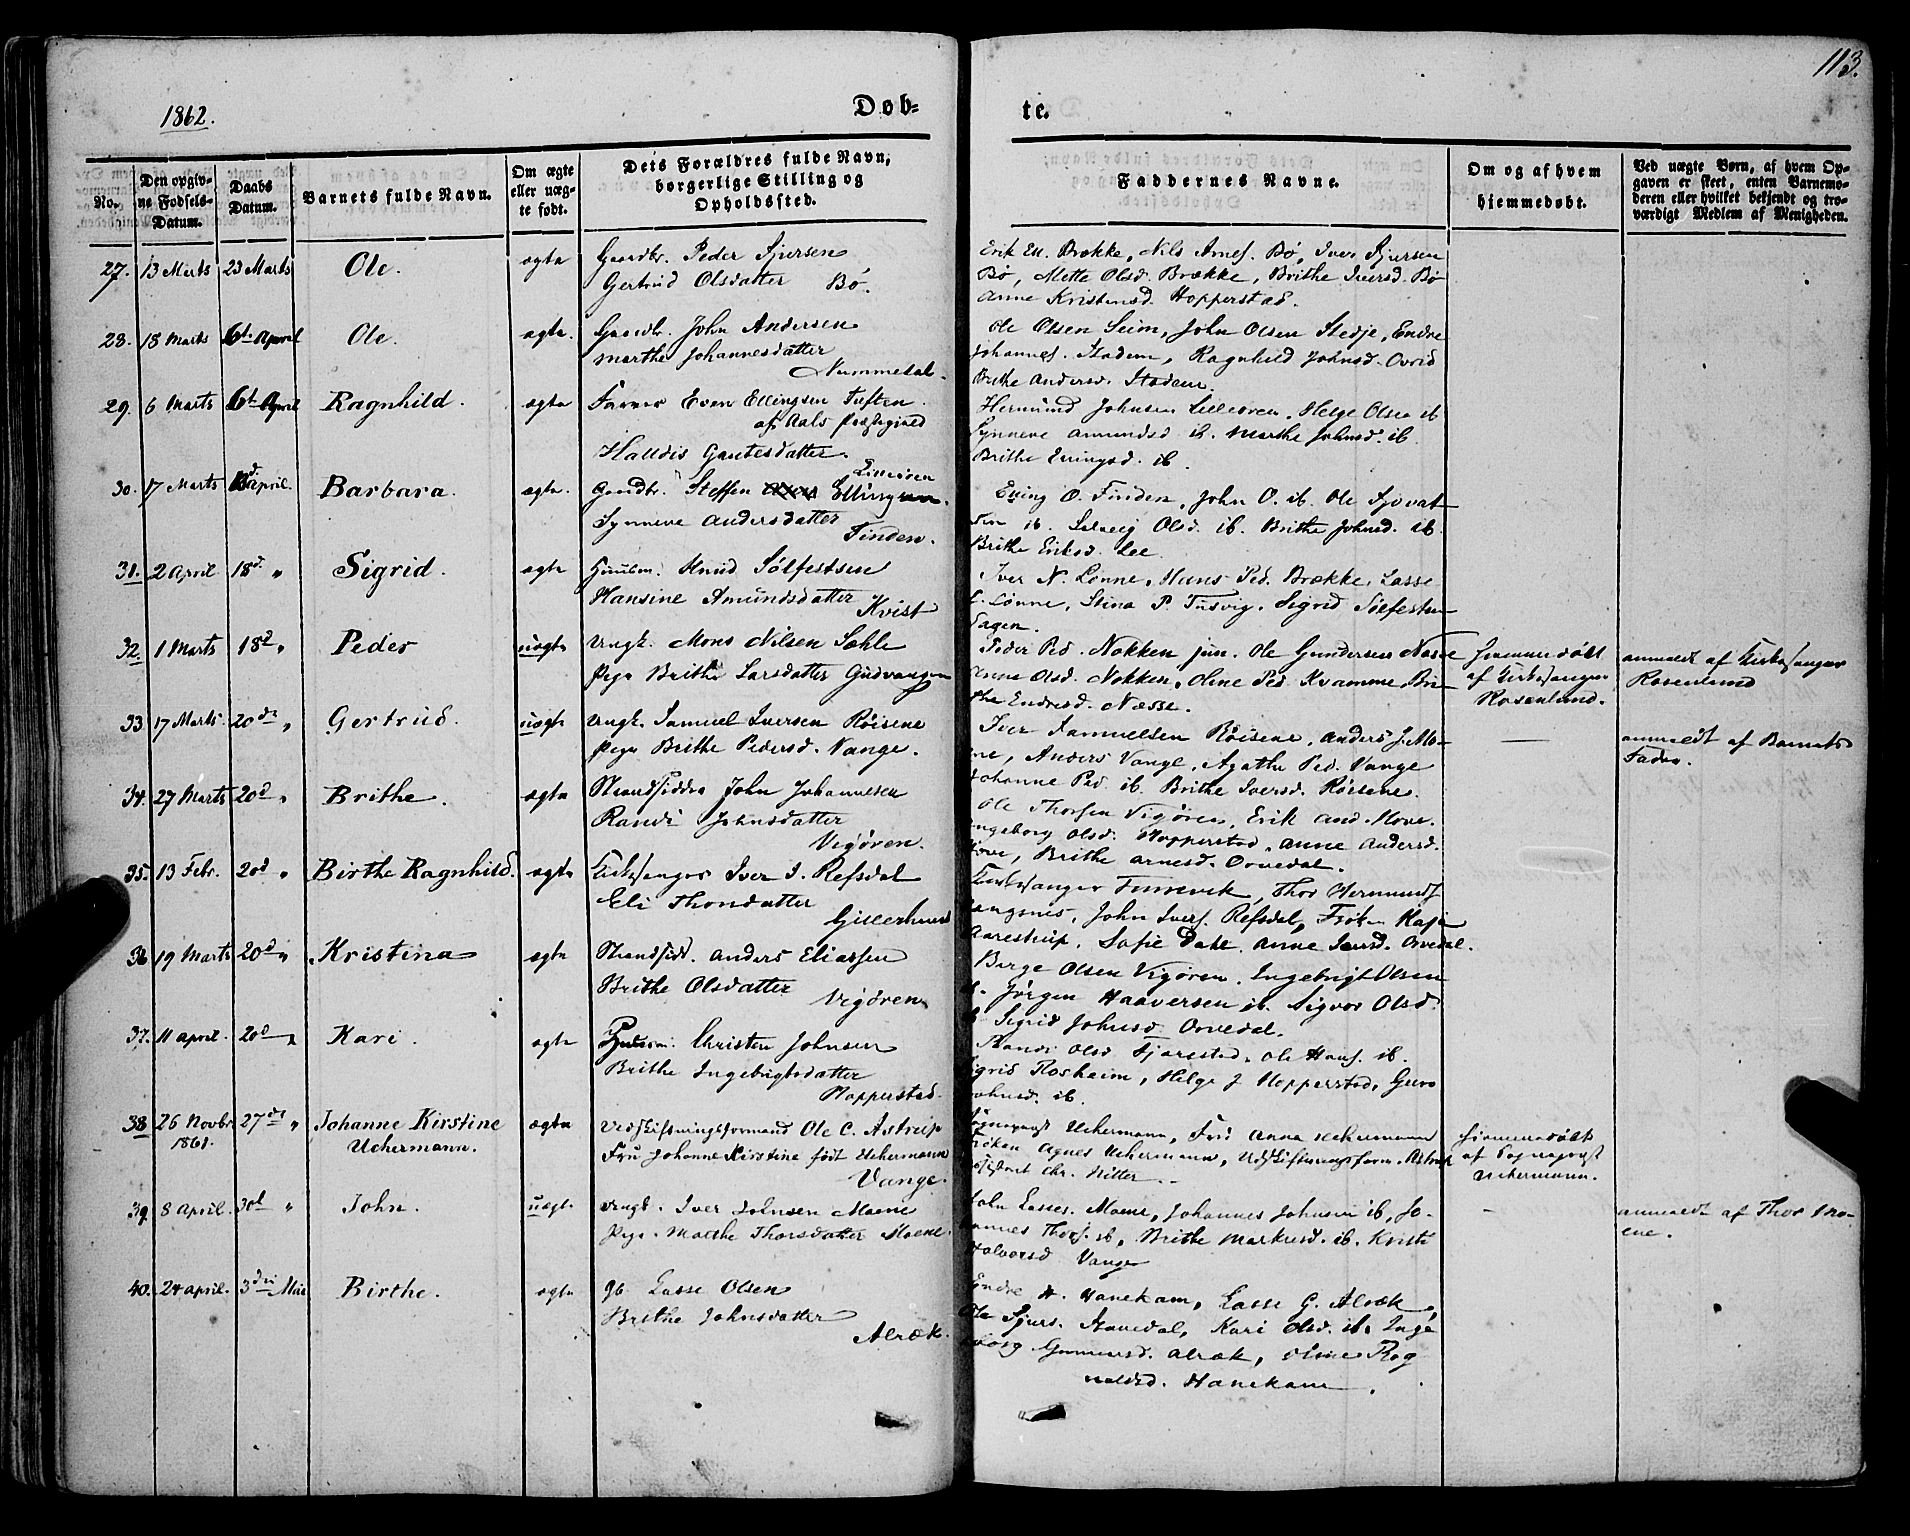 113.
1862.
Døb-
te.
No.
Den opgiv-
ne Fødsels-
Datum.
Daabs
Datum.
Barnets fulde Navn.
Om ægte
eller uæg-
te født.
Dets Forældres fulde Navn,
borgerlige Stilling og
Opholdssted.
Faddernes Navne.
Om og af hvem
hjemmedøbt.
Ved uægte Børn, af hvem Op-
gaven er skeet, enten Barnemo-
deren eller hvilket bekjendt og tro-
værdigt Medlem af Menigheden.
27. 13 Marts 23 Marts Ole. ægte Gaardbr. Peder Sjursen
Gertrud Olsdatter Bø.
Erik Ell. Brække, Nils Arnes. Bø, Iver Sjursen
Bø, Mette Olsd. Brække, Brithe Iversd. Bø
Anne Kristensd. Hopperstad.
28. 18 Marts 6te April Ole. ægte. Gaardbr. John Andersen
Marthe Johannesdatter
Nummedal.
Ole Olsen Seim, John Olsen Stedje, Endre
Johannes. Stadem, Ragnhild Johnsd. Ovrid
Brithe Andersd. Stadem.
29. 6 Marts 6te April Ragnhild. ægte Farver Even Ellingsen Tuften
af Aals Præstegjeld
Halldis Gautesdatter.
Lilleøren
Hermund Johnsen Lilleøren, Helge Olsen ib
Synneve Amundsd ib. Marthe Johnsd. ib.
Brithe Erringsd. ib.
30. 17 Marts April. Barbara. ægte. Gaardbr. Steffen Ellingsen.
Synneve Andersdatter
Finden.
Erring O. Finden, John O. ib. Ole Sjovat
sen ib. Solveig Olsd. ib. Brithe Johnsd. ib.
Brithe Eriksd. Lee.
31. 2 April 18d. " Sigrid. ægte Huusm. Knud Sølfestsen
Hansine Amundsdatter
Kvist
Iver N. Lønne, Hans Ped. Brække, Lasse
Lønne, Stina P. Tusvig, Sigrid Sølfestsen
Hagen.
32. 1 Marts 18d " Peder uægte Ungk. Mons Nilsen Sæhle
Pige Brithe Larsdatter Gudvangen
Peder Ped. Nokken jun. Ole Gundersen Næsse
Anne Olsd. Nokken, Oline Ped. Kvamme, Bri-
the Endresd. Næsse.
hjemmedøbt
af Kirkesanger
Rosenlund.
anmeldt af Kirkesanger
Rosenlund
33. 17 Marts. 20de " Gertrud. uægte Ungk. Samuel Iversen Røisene
Pige Brithe Pedersd. Vange.
Iver Samuelsen Røisene, Anders J. Mo-
ne, Anders Vange, Agathe Ped. Vange
Johanne Ped ib. Brithe Iversd. Røisene.
—
anmeldt af Barnets
Fader.
34. 27 Marts 20d " Brithe. ægte Strandsidder John Johannesen
Randi Johnsdatter
Vigøren.
Ole Thorsen Vigøren, Erik And. Hove.
Ingeborg Olsd. Hopperstad, Anne Andersd.
Hove, Brithe Arnesd. Orvedal.
35. 13 Febr. 20d " Birthe Ragnhild. ægte Kirkesanger Iver J. Refsdal
Eli Thordatter
Kirkesanger Turrevik, Thor Hermunds
Vangsnes, John Ivers. Refsdal, Frøken Kaja
Aarestrup, Sofie Dahl. Anne Iversd. Orvedal.
36 19 Marts 20d " Kristina ægte Strandsidd. Anders Eliassen
Brithe Olsdatter
Vigøren.
Børge Olsen Vigøren. Ingebrigt Olsen
ib. Jørgen Haaversen ib. Sigvor Olsd.
ib Sigrid Johnsd Orvedal.
37. 11 april. 20d " Kari. ægte Huusm. Christen Johnsen
Brithe Ingebrigtsdatter
Hopperstad.
Randi Olsd Fjærestad, Ole Hans. ib.
Sigrid Flosheim, Helge J Hopperstad, Guro
Johnsd. ib.
38. 26 Novbr. 1861. 27de " Johanne Kirstine
Uchermann. ægte Udskiftningsformand Ole C. Astrup
Fru Johanne Kirstine født Uchermann
Vange.
Sognepræst Uchermann, Frø Anna Uchermann
Frøken Agnes Uchermann, Udskiftningsform. Astrup
Chr. Ritter.
hjemmedøbt
af Sognepræst
Uchermann.
39. 8 April. 30d " John. uægt. Ungk. Iver Johnsen Moene
Pige. Marthe Thorsdatter Moene.
John Lasses. Moene, Johannes Johnsen ib, Jo-
hannes Thors. ib, Brithe Markusd. ib. Kristi
Halvorsd Vange
—
anmeldt af Thor Mo-
ene.
40. 24 april. 3die Mai Birthe. ægte Gb. Lasse Olsen
Brithe Johnsdatter
Alræk.
Endre H. Hanekam, Lasse G. Alræk,
Ole Sjurs. Stavedal, Kari Olsd. ib. Inge
borg Gunnersd. Alræk, Oline Rog
naldsd. Hanekam.